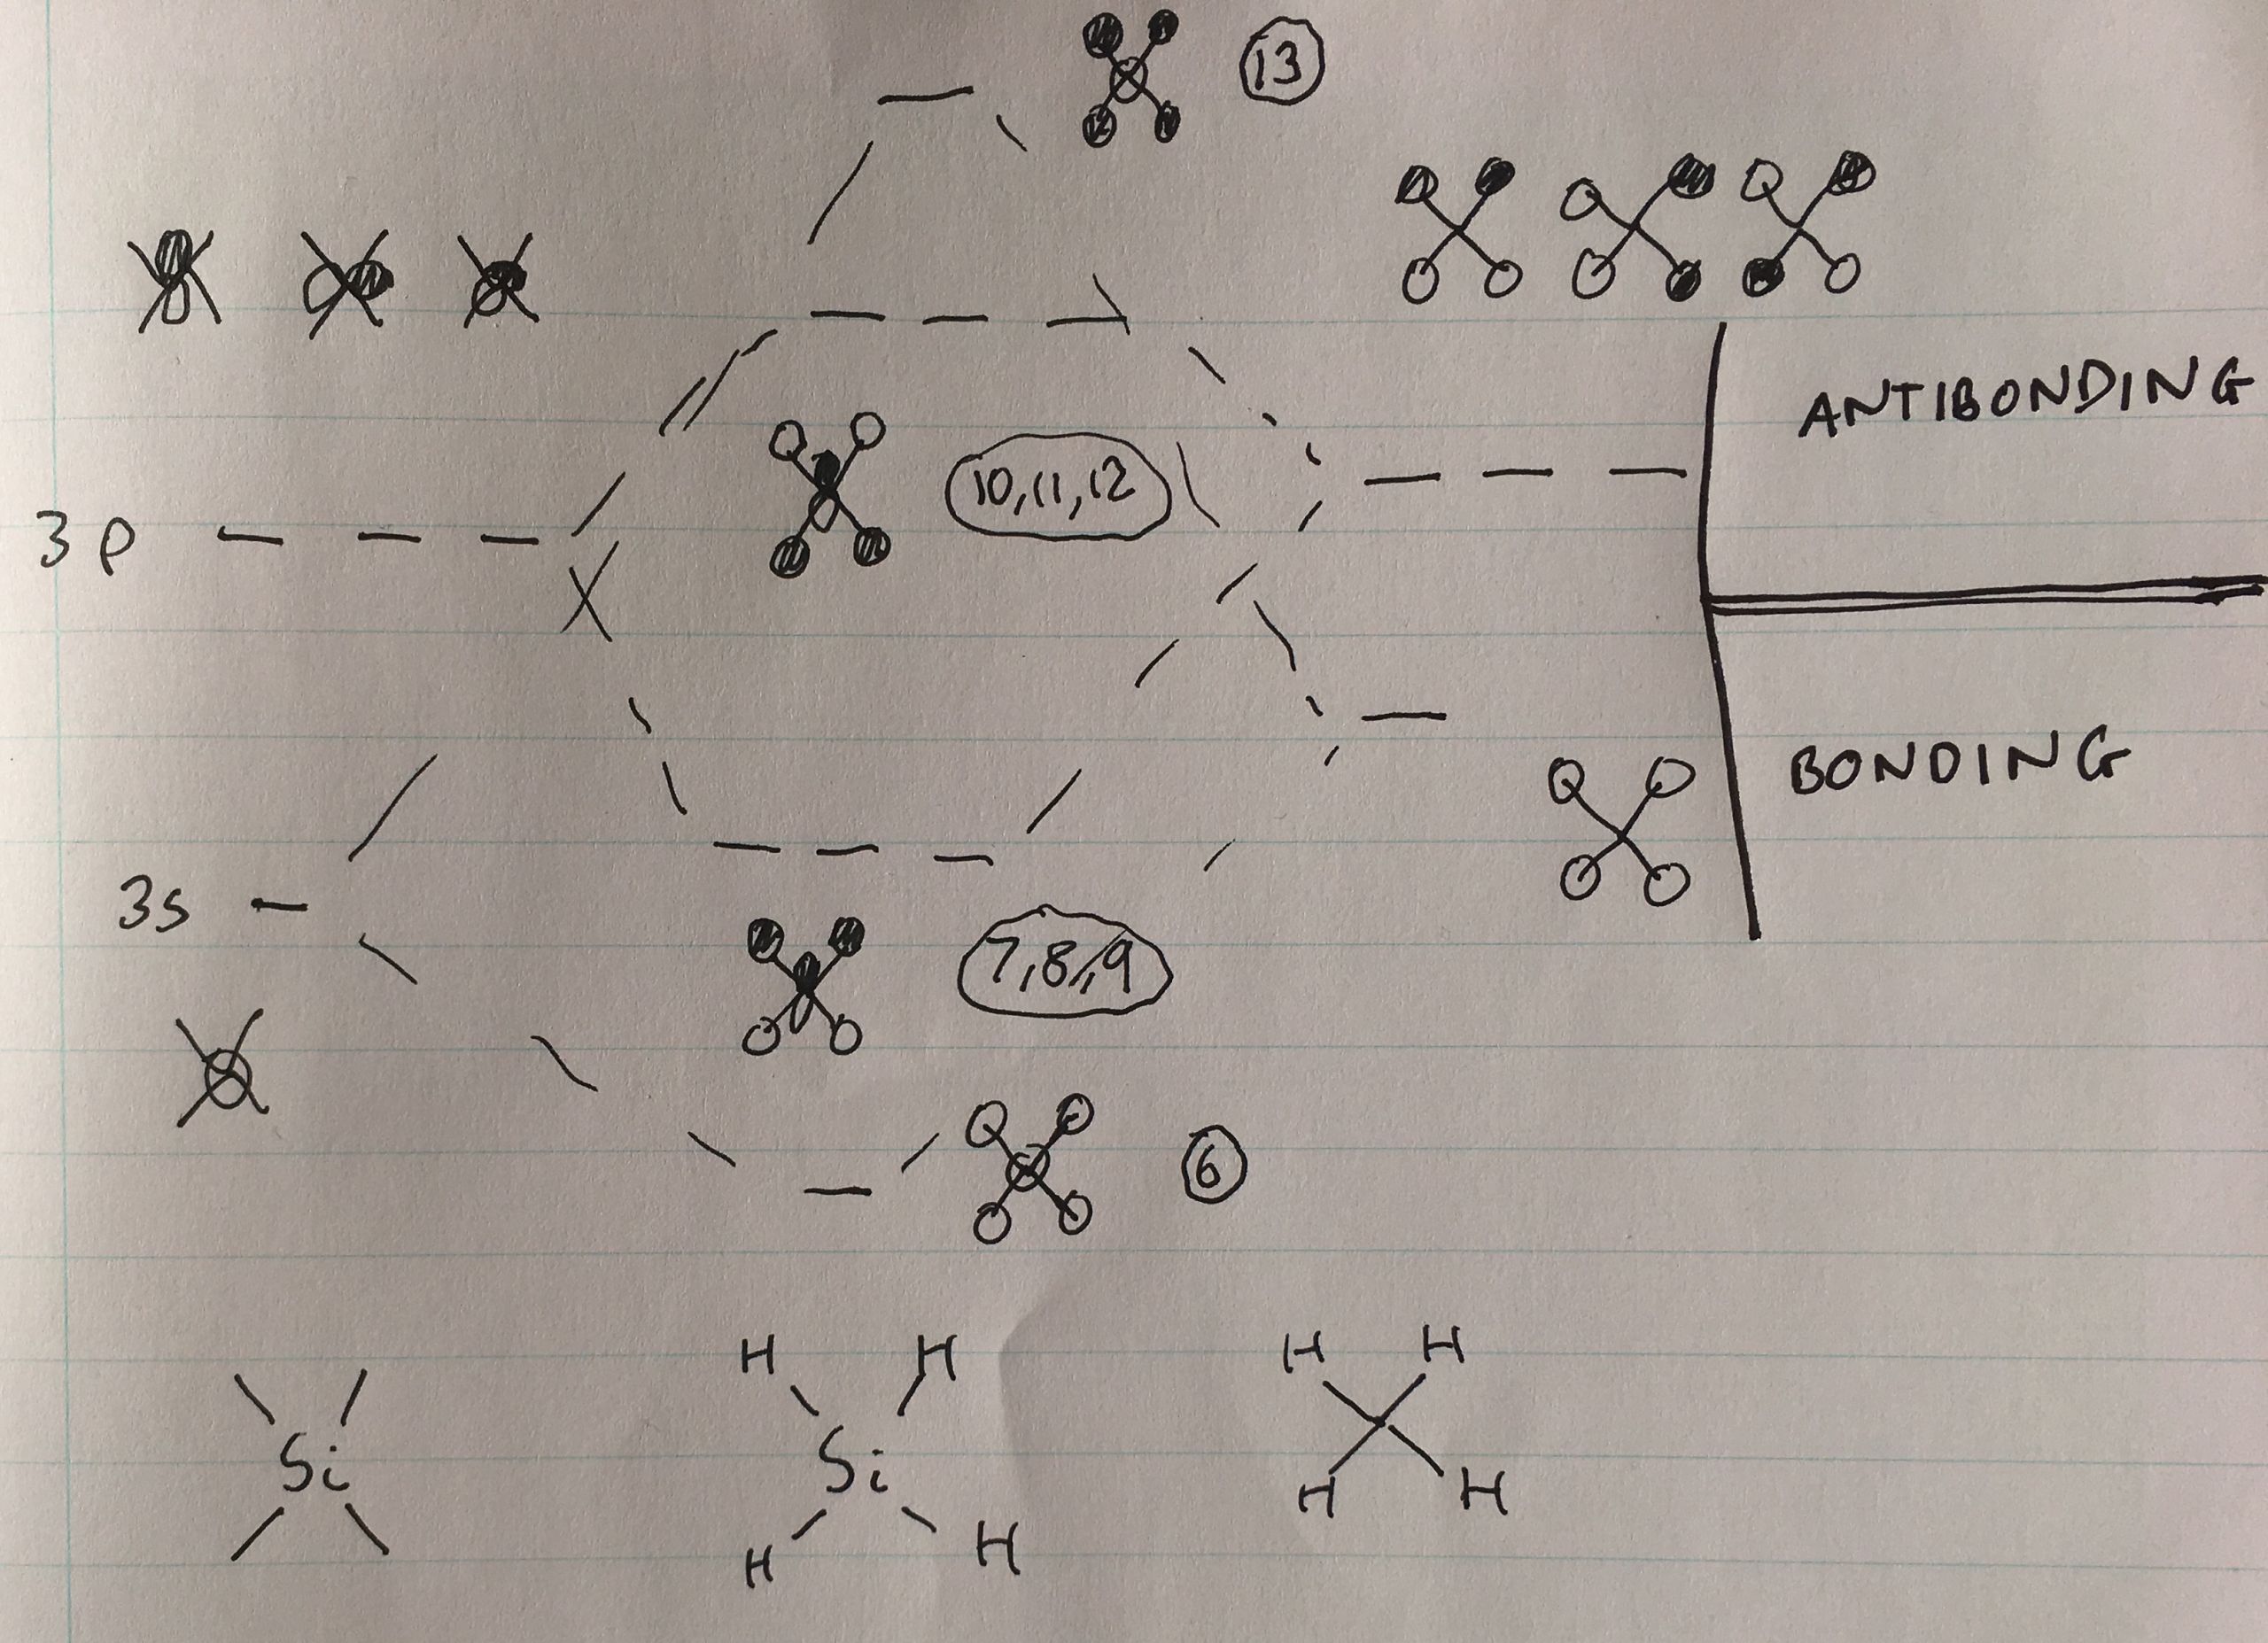 13
ANTIBONDING
3p
10,11,12
BONDING
3s
7,8,9
6
H H H H
Si Si
H H H H